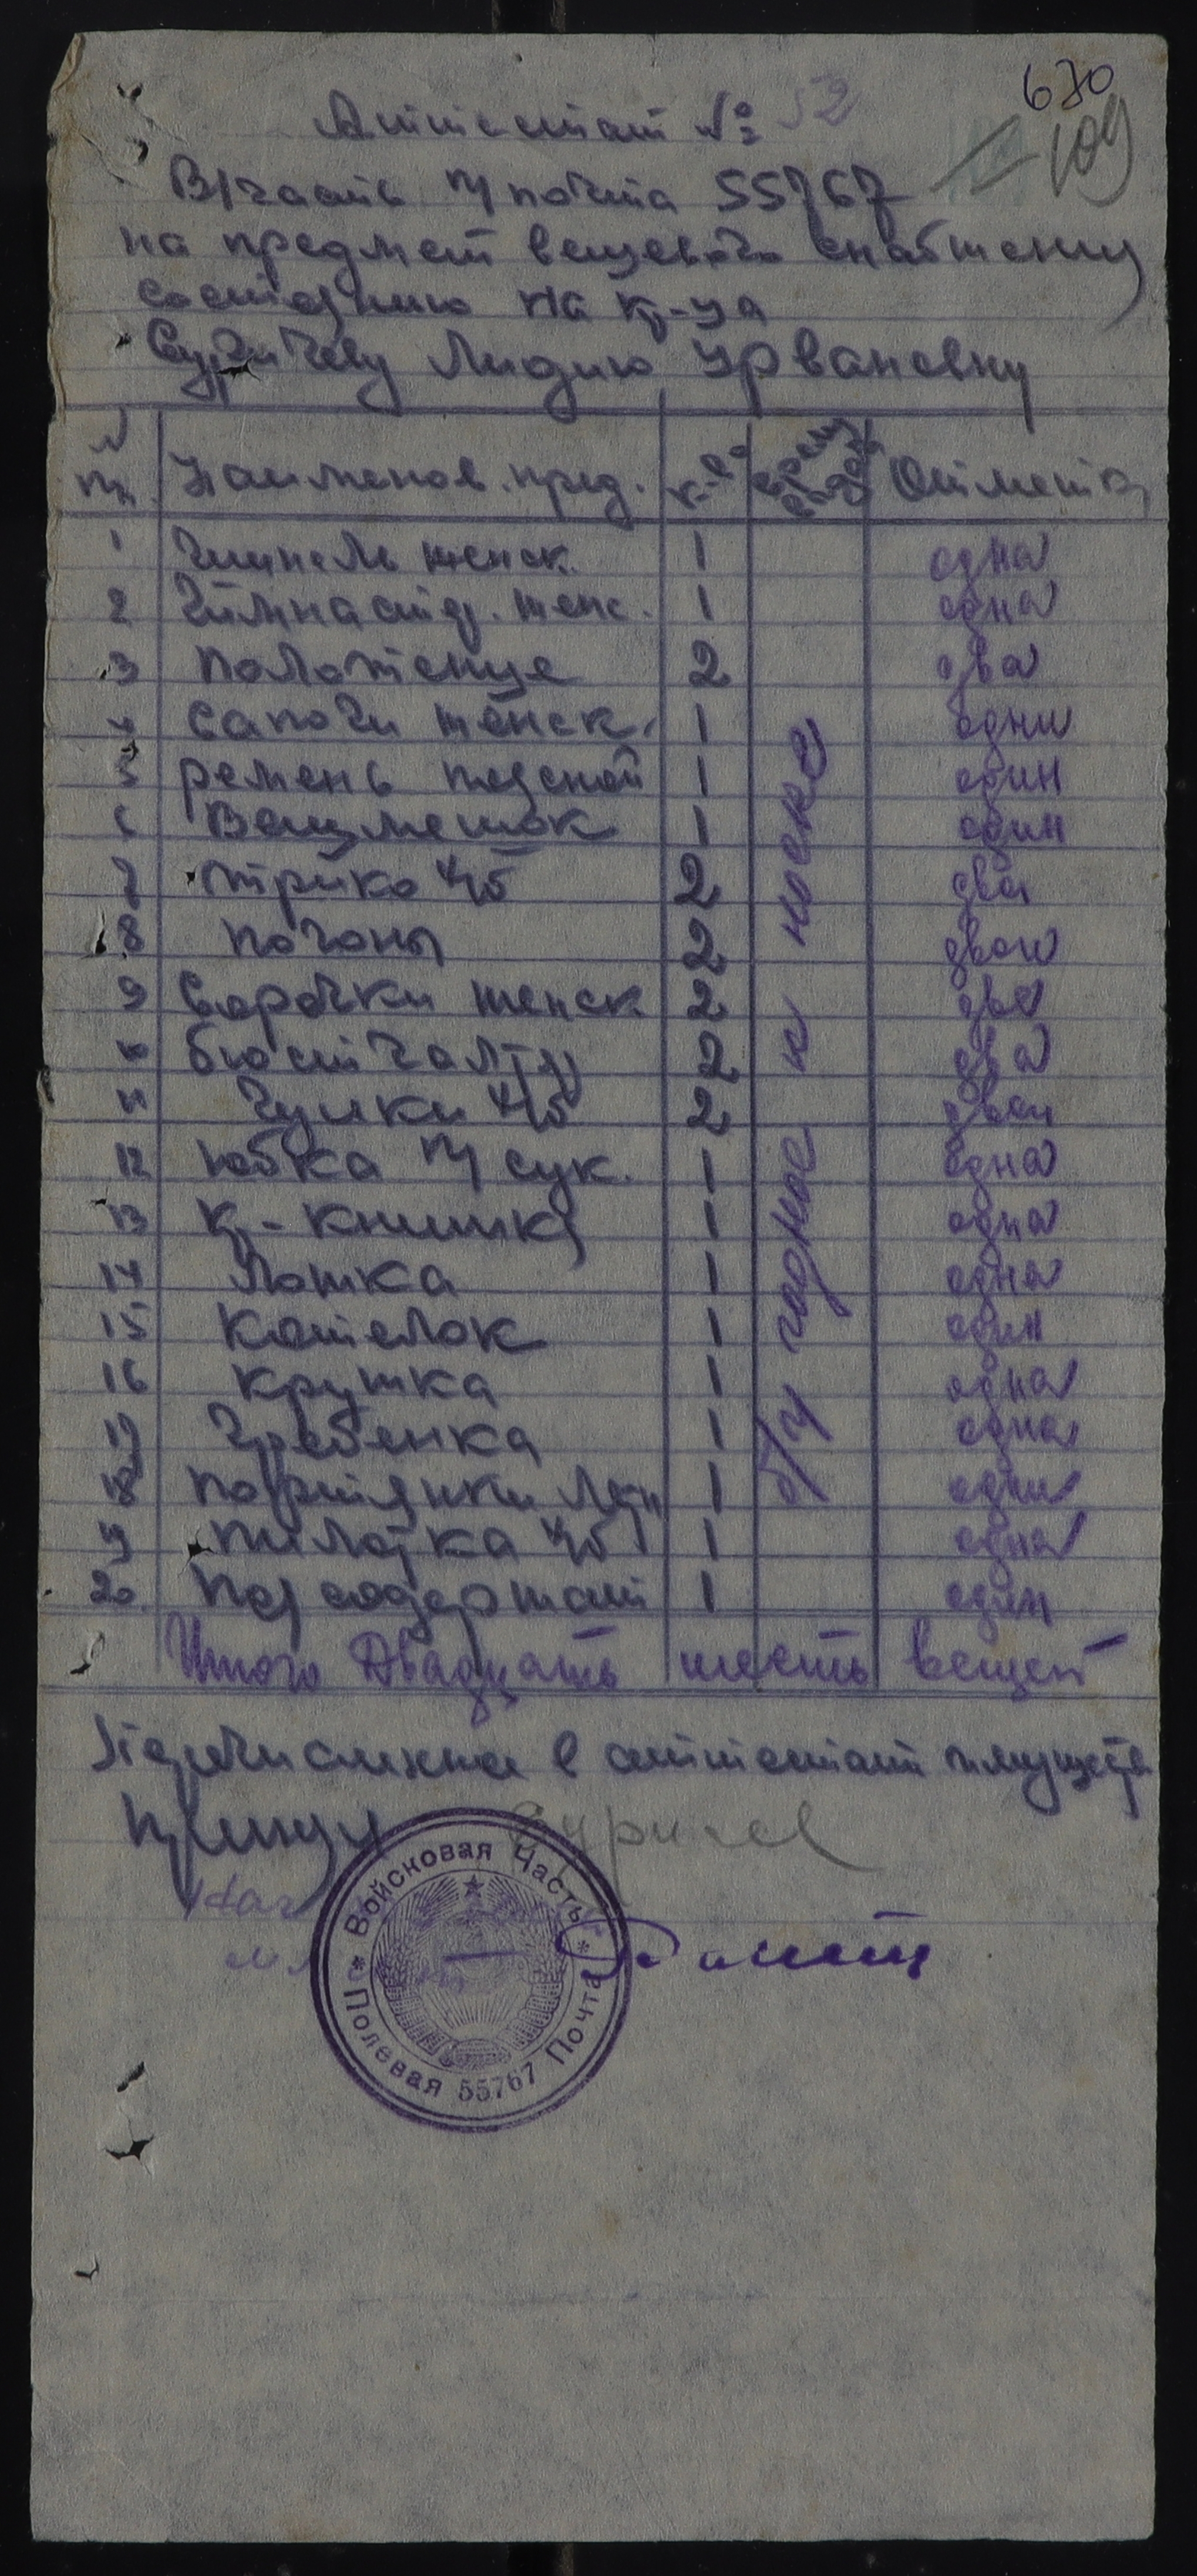 670
Аттестат № 52
109
В/часть п/почта 55767
на предмет вещевого снабжения
состоящую на к-ца
Лидию Урвановну
№ пп Наименов. пред. к-во Отметка
1 Шинель женск. 1 одна
2 Гимнастер. женс. 1 одна
3 Полотенце 2 два
4 Сапоги женск. 1 одни
5 ремень поясной 1 один
6 Вещмешок 1 один
7 трико х/б 2 два
8 погоны 2 двои
9 Сорочки женск 2 две
10 бюстгалтер 2 два
11 Чулки х/б 2 двои
12 Юбка п/сук. 1 одна
13 Кр-книжка 1 одна
14 Ложка 1 одна
15 Котелок 1 один
16 Кружка 1 одна
17 Гребенка 1 одна
18 Портянки лет 1 одни
19 пилотка х/б 1 одна
20 Подсодержат 1 один
б/у годное к носке
Итого Двадцать шесть вещей
в аттестат имущество
Войсковая Часть
Полевая 55767 Почта